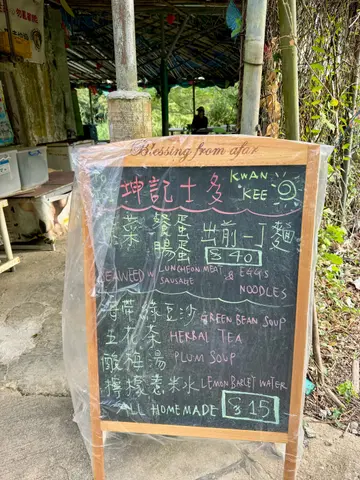 Blessing from afar
坤記士多 KWAN KEE
紫菜 餐蛋 腸蛋 出前一丁麵
$40
SEAWEED W LUNCHEON MEAT SAUSAGE & EGGS NOODLES
海帶綠豆沙 GREEN BEAN SOUP
五花茶 HERBAL TEA
酸梅湯 PLUM SOUP
檸檬薏米水 LEMON BARLEY WATER
ALL HOMEMADE $15